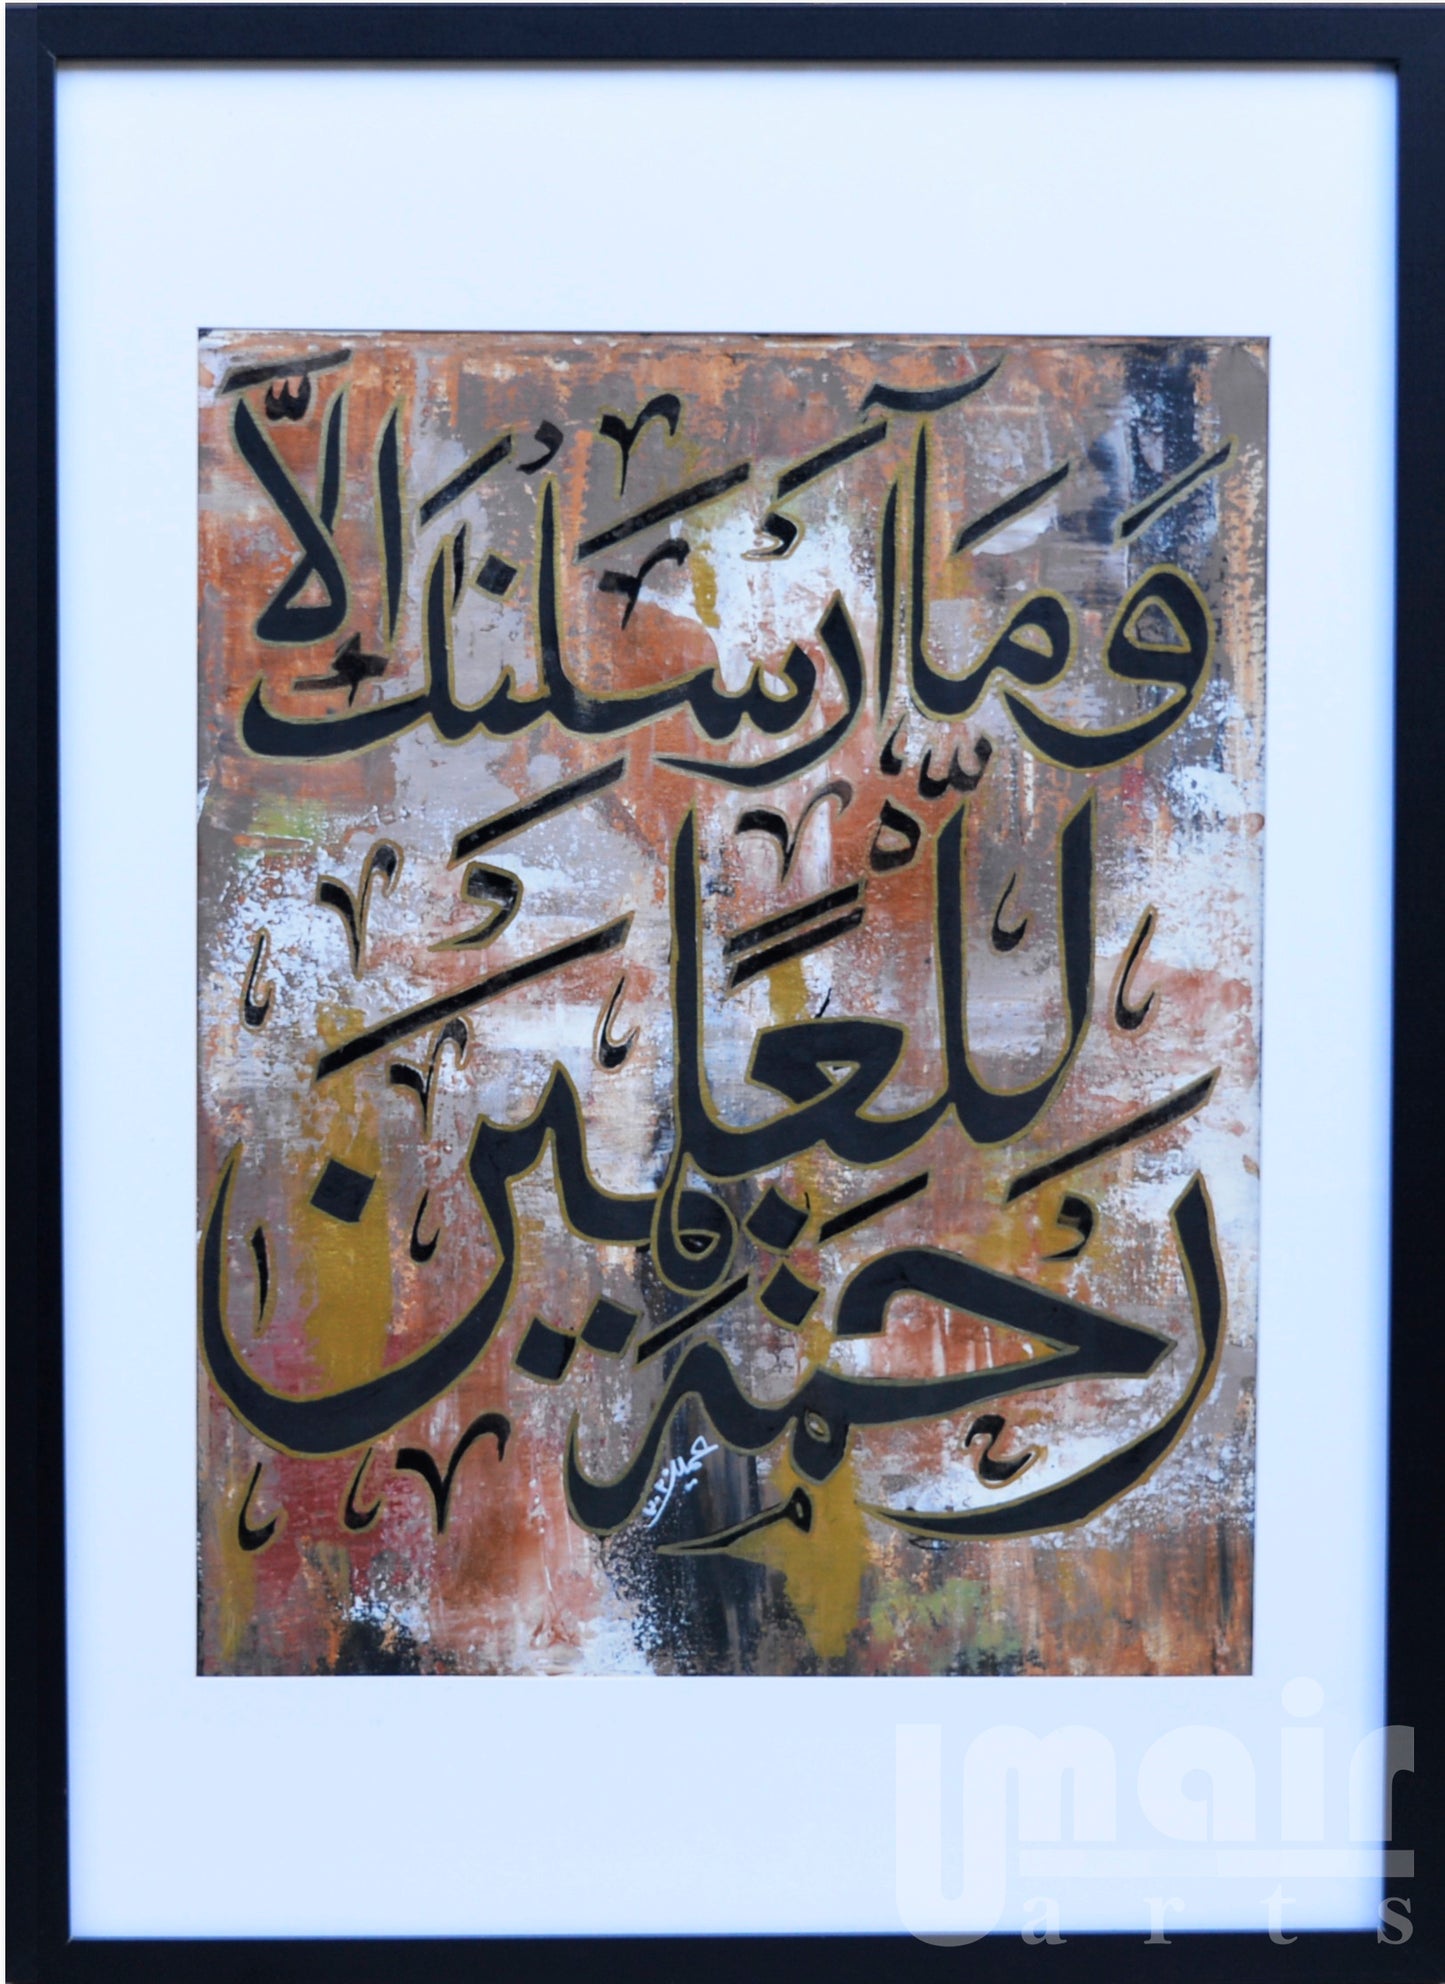 وَمَآ أَرْسَلْنَٰكَ إِلَّا
رَحْمَةً لِّلْعَٰلَمِينَ
Umair
arts